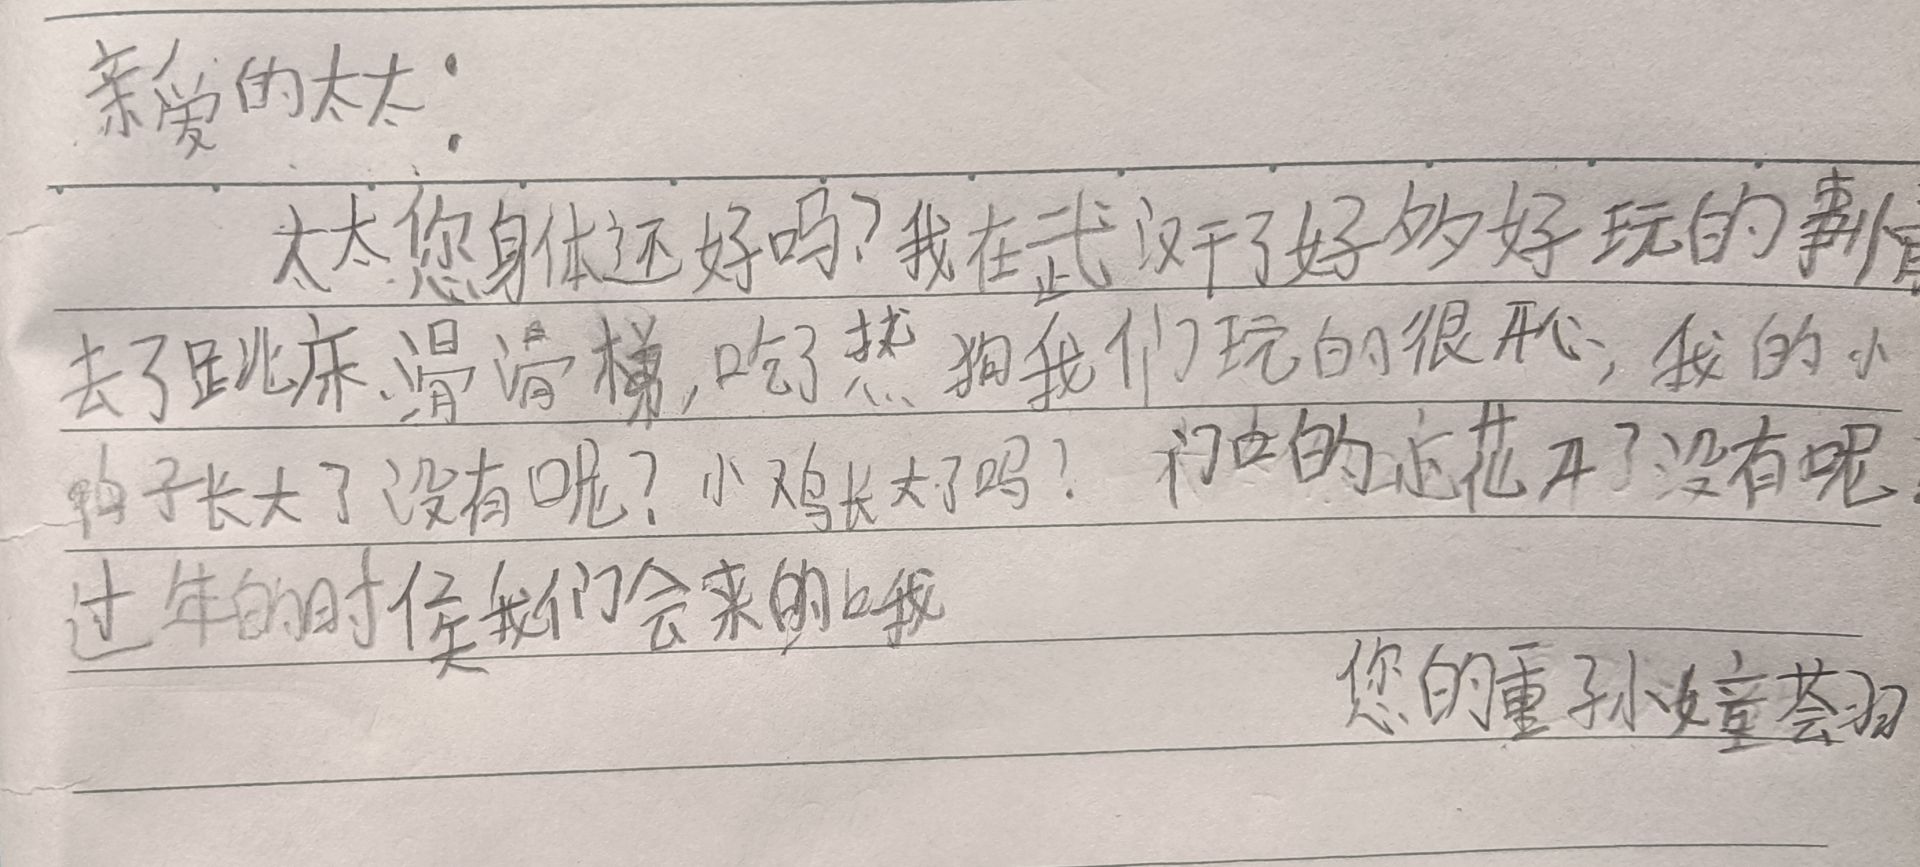 亲爱的太太：
太太您身体还好吗？我在武汉干了好多好玩的事情
去了跳床、滑滑梯，吃了热狗我们玩的很开心，我的小
鸭子长大了没有呢？小鸡长大了吗？的花开了没有呢
过年的时候我们会来的哦
您的重孙女童荟羽